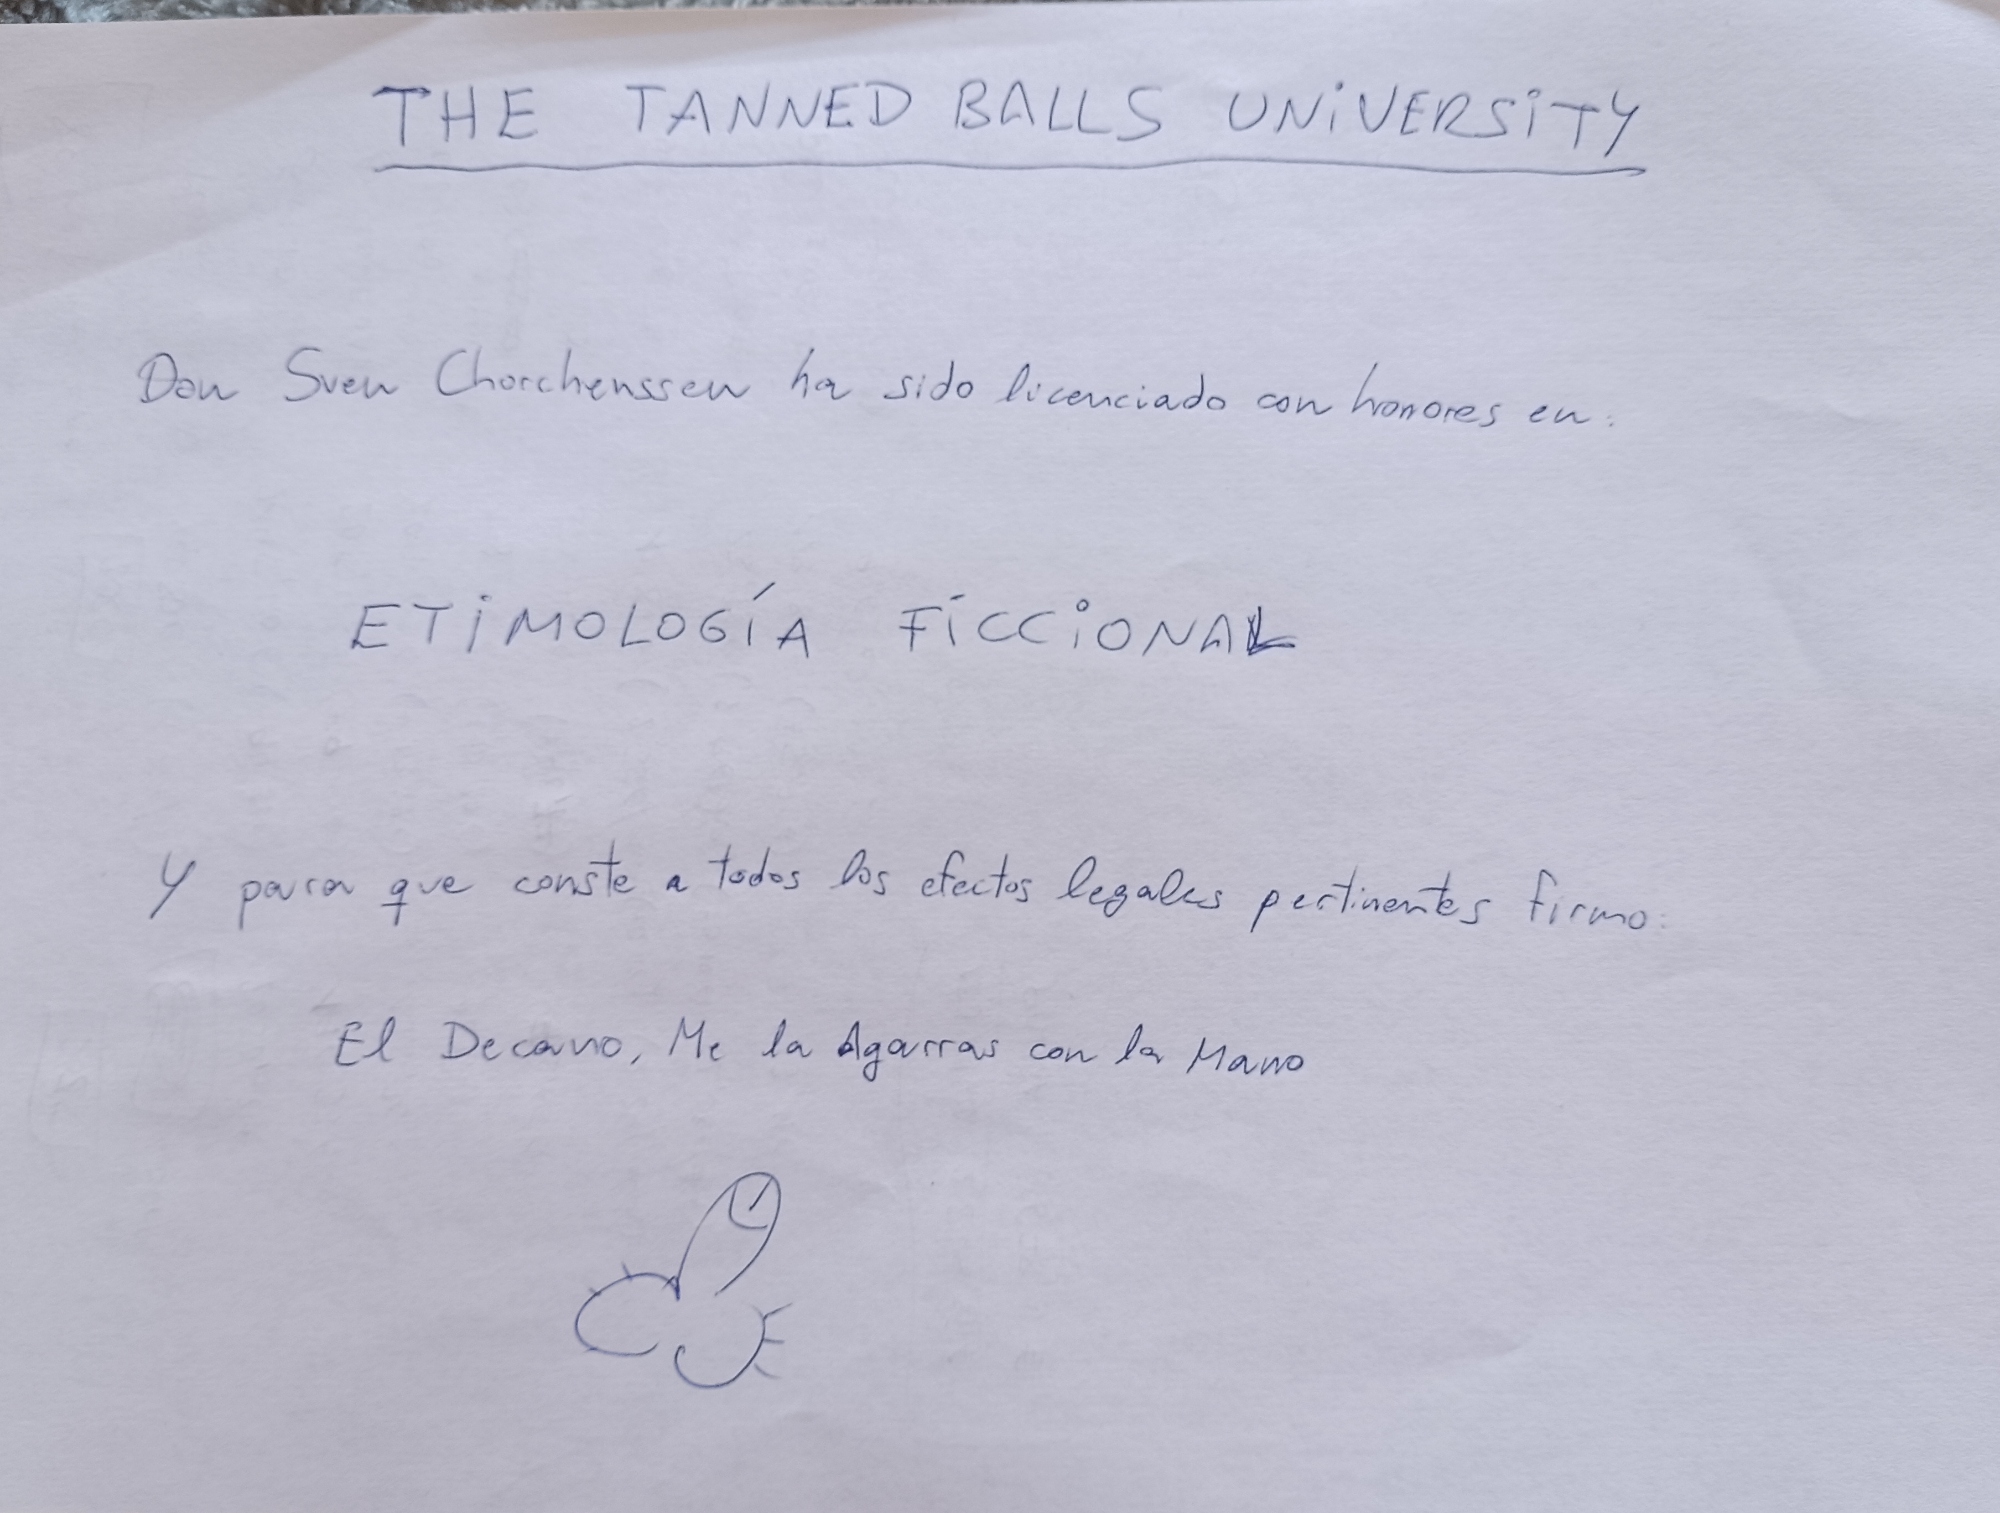 THE TANNED BALLS UNIVERSITY
Don Sven Chorchenssen ha sido licenciado con honores en:
ETIMOLOGÍA FICCIONAL
Y para que conste a todos los efectos legales pertinentes firmo:
El Decano, Me la Agarras con la Mano